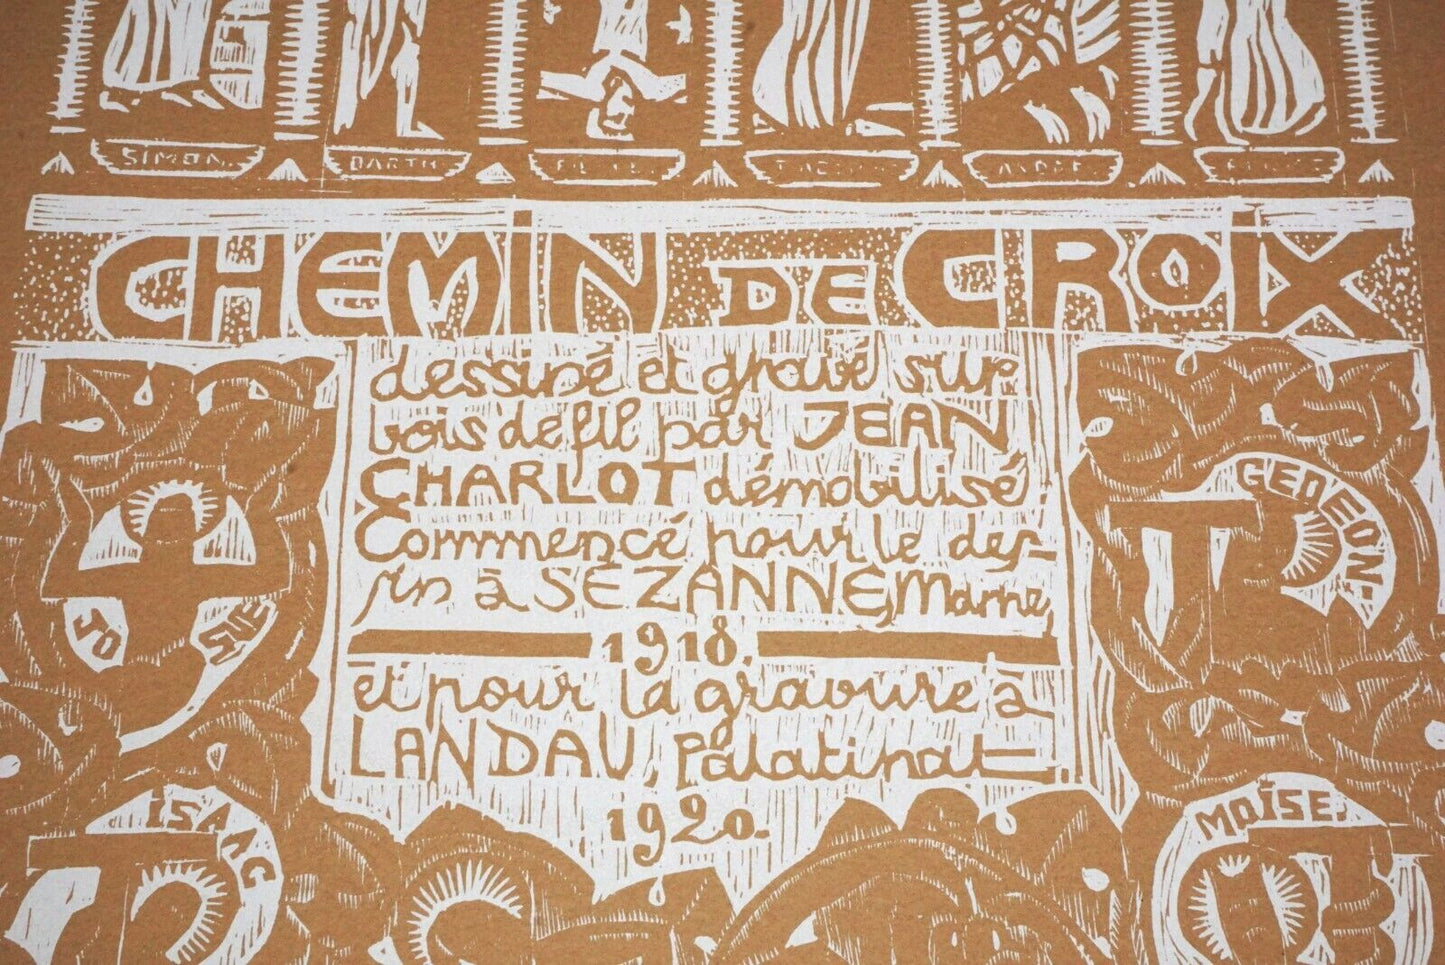 SIMON.
BARTH
ANDRE
CHEMIN DE CROIX
dessiné et gravé sur
bois de fil par JEAN
CHARLOT démobilisé.
Commencé pour le des-
sin à SEZANNE, Marne
1918.
et pour la gravure à
LANDAU, Palatinat
1920.
GEDEON.
JO
SUE
ISAAC
MOÏSE.